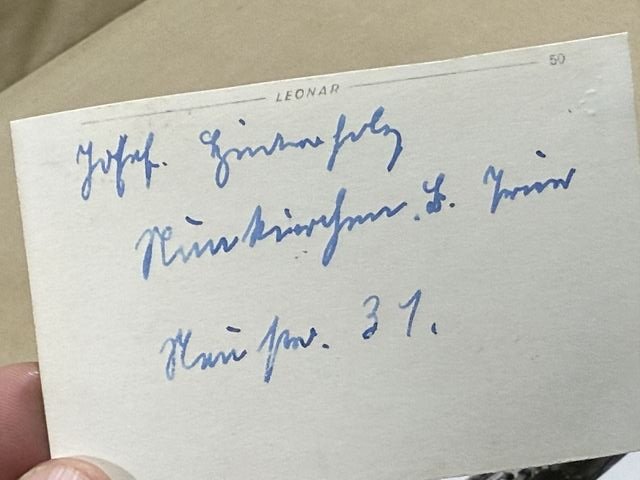 LEONAR 50
Josef. Hinterholz
Neunkirchen. b. Trier
Neustr. 31.